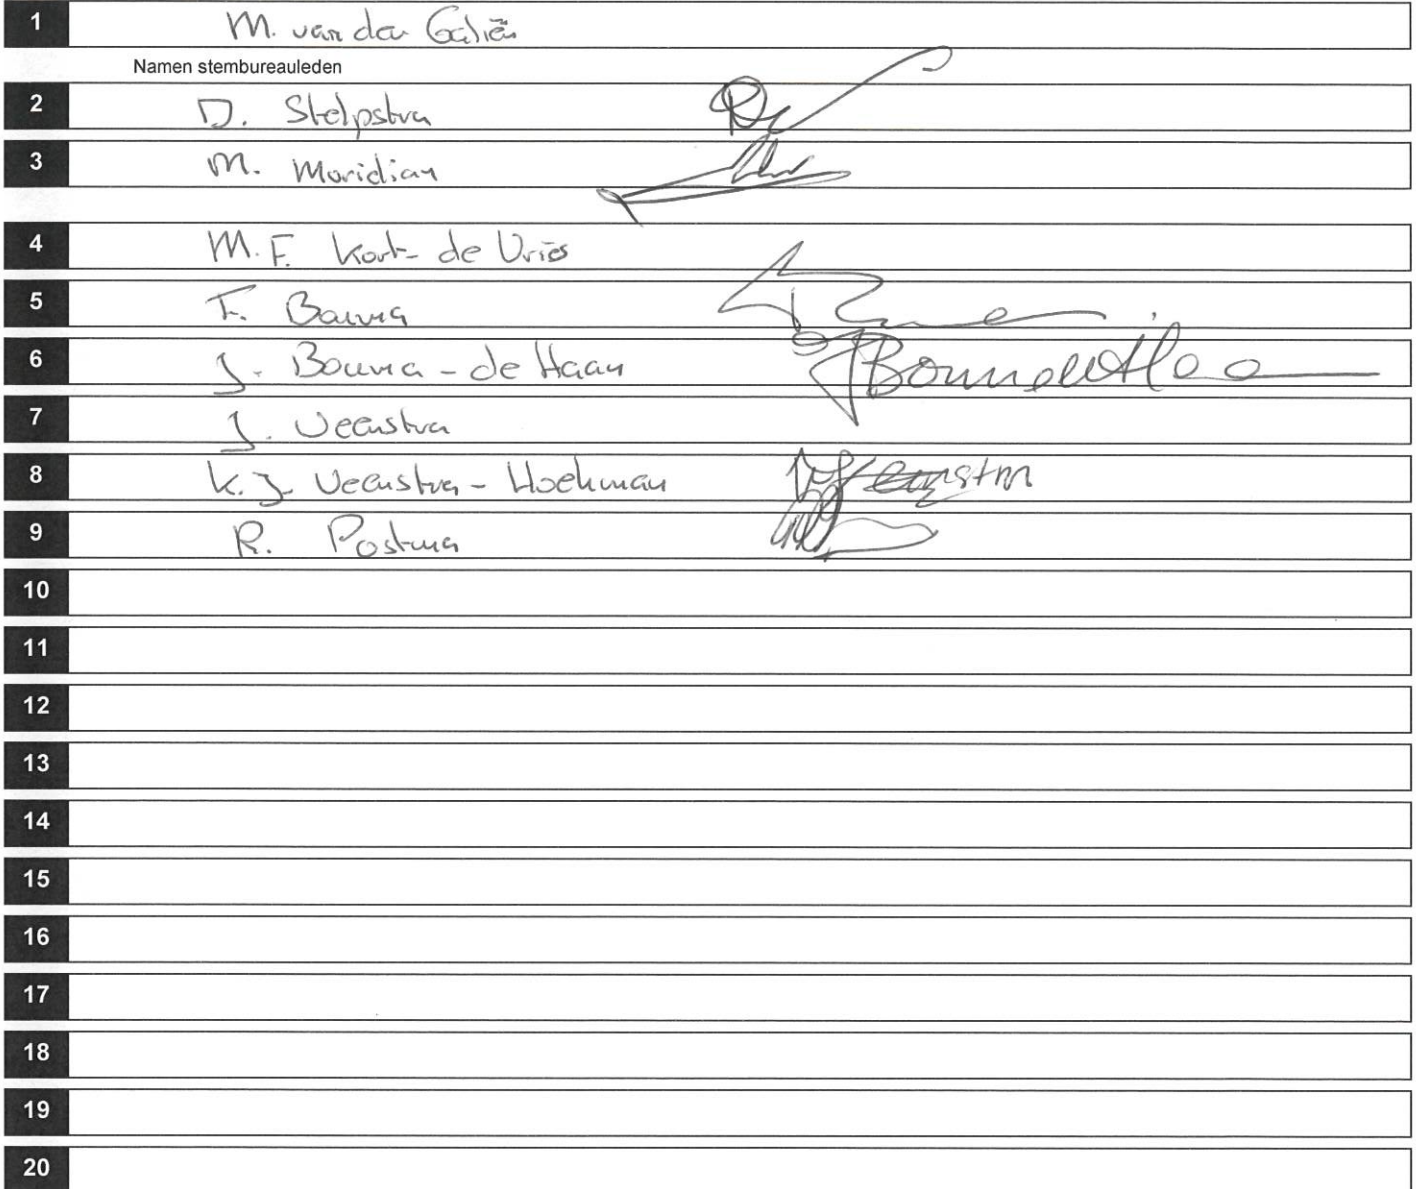 1 M. van der Galiën
Namen stembureauleden
2 D. Stelpstra
3 M. Moridian
4 M.F. Kort-de Vries
5 F. Bouma
6 J. Bouma-de Haan
7 J. Veenstra
8 K.J. Veenstra-Hoekman
9 R. Postma
10
11
12
13
14
15
16
17
18
19
20